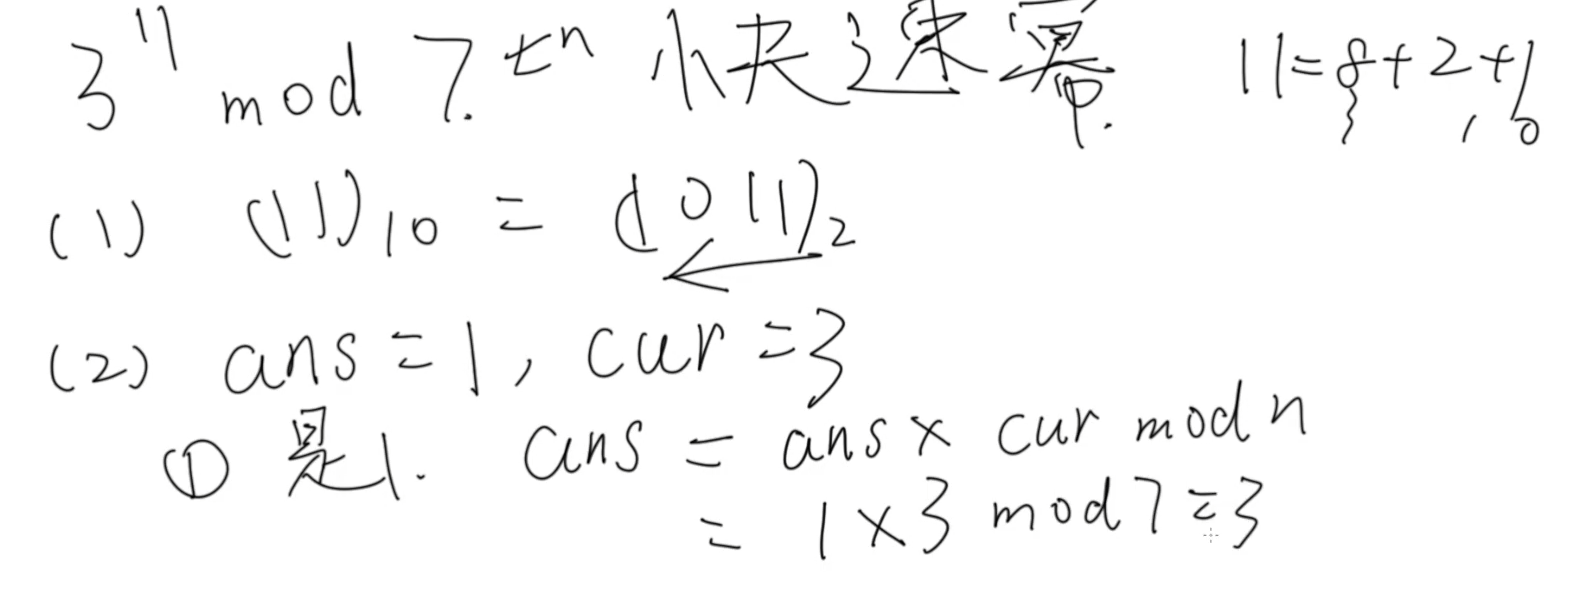 3^11 mod 7. t^n 小快速幂 11=8+2+1
3 , 1 0
(1) (11)10 = (1011)2
(2) ans=1, cur=3
① 是1. ans = ans × cur mod n
= 1×3 mod 7=3